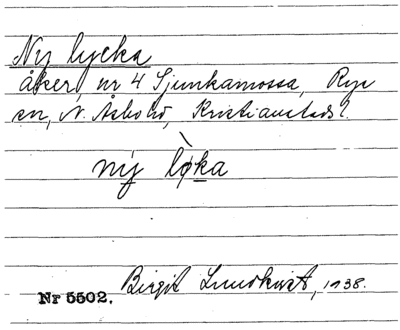 Ny lycka
åker, nr 4 Sjunkamossa, Rye
sn, N. Åsbo hd, Kristianstads l.
ný lø̀ka
Nr 5502. Birgit Lundkvist, 1938.